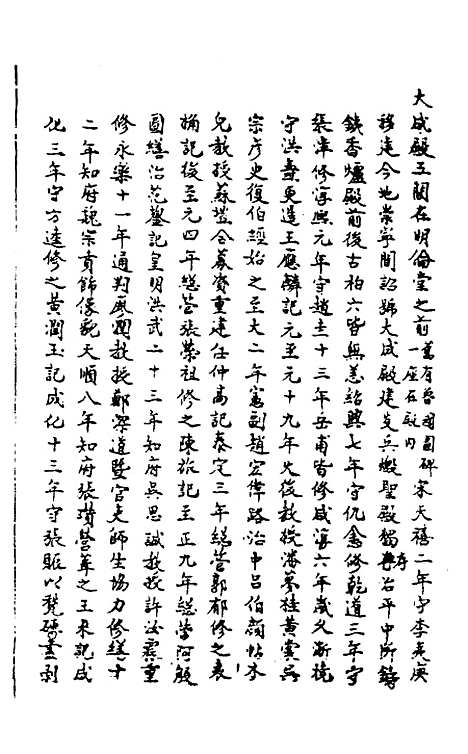 大成殿五間在明倫堂之前舊有魯國圖碑一座在殿內宋天禧二年守李夷庚
移建今地崇寧閒詔號大成殿建炎兵燬聖殿獨存與治平中所鑄
鉄香爐殿前後古柏六皆無恙紹興七年守仇悆修乾道三年守
張津修淳熙元年守趙 十三年岳甫皆修咸淳六年歲久漸撓
守洪燾更造王應麟記元至元十九年火後教授潘夢桂黃震吳
宗彥史復伯經始之至大二年憲副趙宏偉路治中呂伯顏帖木
兒教授蘇 令募資重建任仲高記泰定三年緫管郭郁修之袁
桷記後至元四年緫管張榮祖修之陳旅記至正九年緫管阿殷
圖繕治范 記皇明洪武二十三年知府吳思誠教授許汝霖重
修永樂十一年通判廖潤教授鄭深道暨官夫師生協力修繕十
二年知府魏宗貢飾像貌天順八年知府張瓚營葺之王來記成
化三年守方逵修之黃潤玉記成化十三年守張賑以甃磚 剝